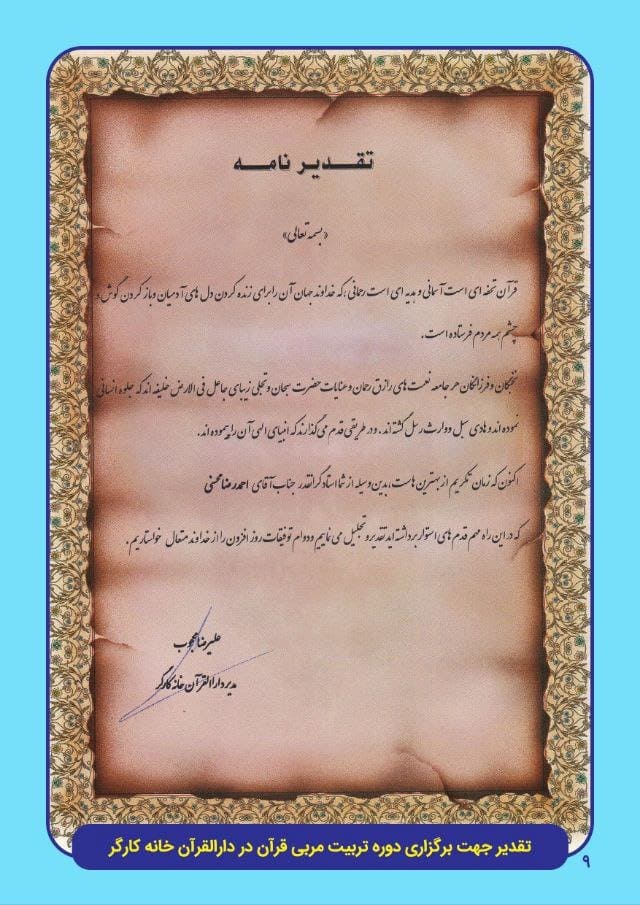 تقدیر نامه
«بسمه تعالی»
قرآن تحفه ای است آسمانی و هدیه ای است رحمانی ؛ که خداوند جهان آن را برای زنده کردن دل های آدمیان و باز کردن گوش و
چشم همه مردم فرستاده است .
نخبگان و فرزانگان هر جامعه نعمت های رازق رحمان و عنایات حضرت سبحان و تجلی زیبای جاعل فی الارض خلیفه اند که جلوه انسانی
نموده اند و هادی سبل و وارث رسل گشته اند . و در طریقی قدم می گذارند که انبیای الهی آن را پیموده اند .
اکنون که زمان تکریم از بهترین هاست ، بدین وسیله از شما استاد گرانقدر جناب آقای احمدرضا محسنی
که در این راه مهم قدم های استوار برداشته اید تقدیر و تجلیل می نماییم و دوام توفیقات روز افزون را از خداوند متعال خواستاریم .
علیرضا محجوب
مدیر دارالقرآن خانه کارگر
تقدیر جهت برگزاری دوره تربیت مربی قرآن در دارالقرآن خانه کارگر
۹